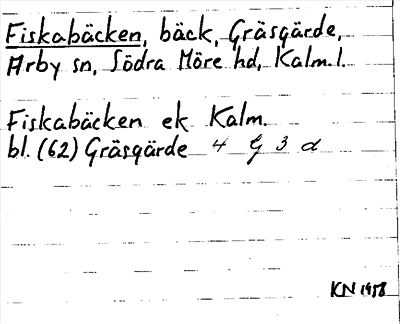 Fiskabäcken, bäck, Gräsgärde,
Arby sn, Södra Möre hd, Kalm. l.
Fiskabäcken ek Kalm.
bl. (62) Gräsgärde 4 G 3 d
KN 1958